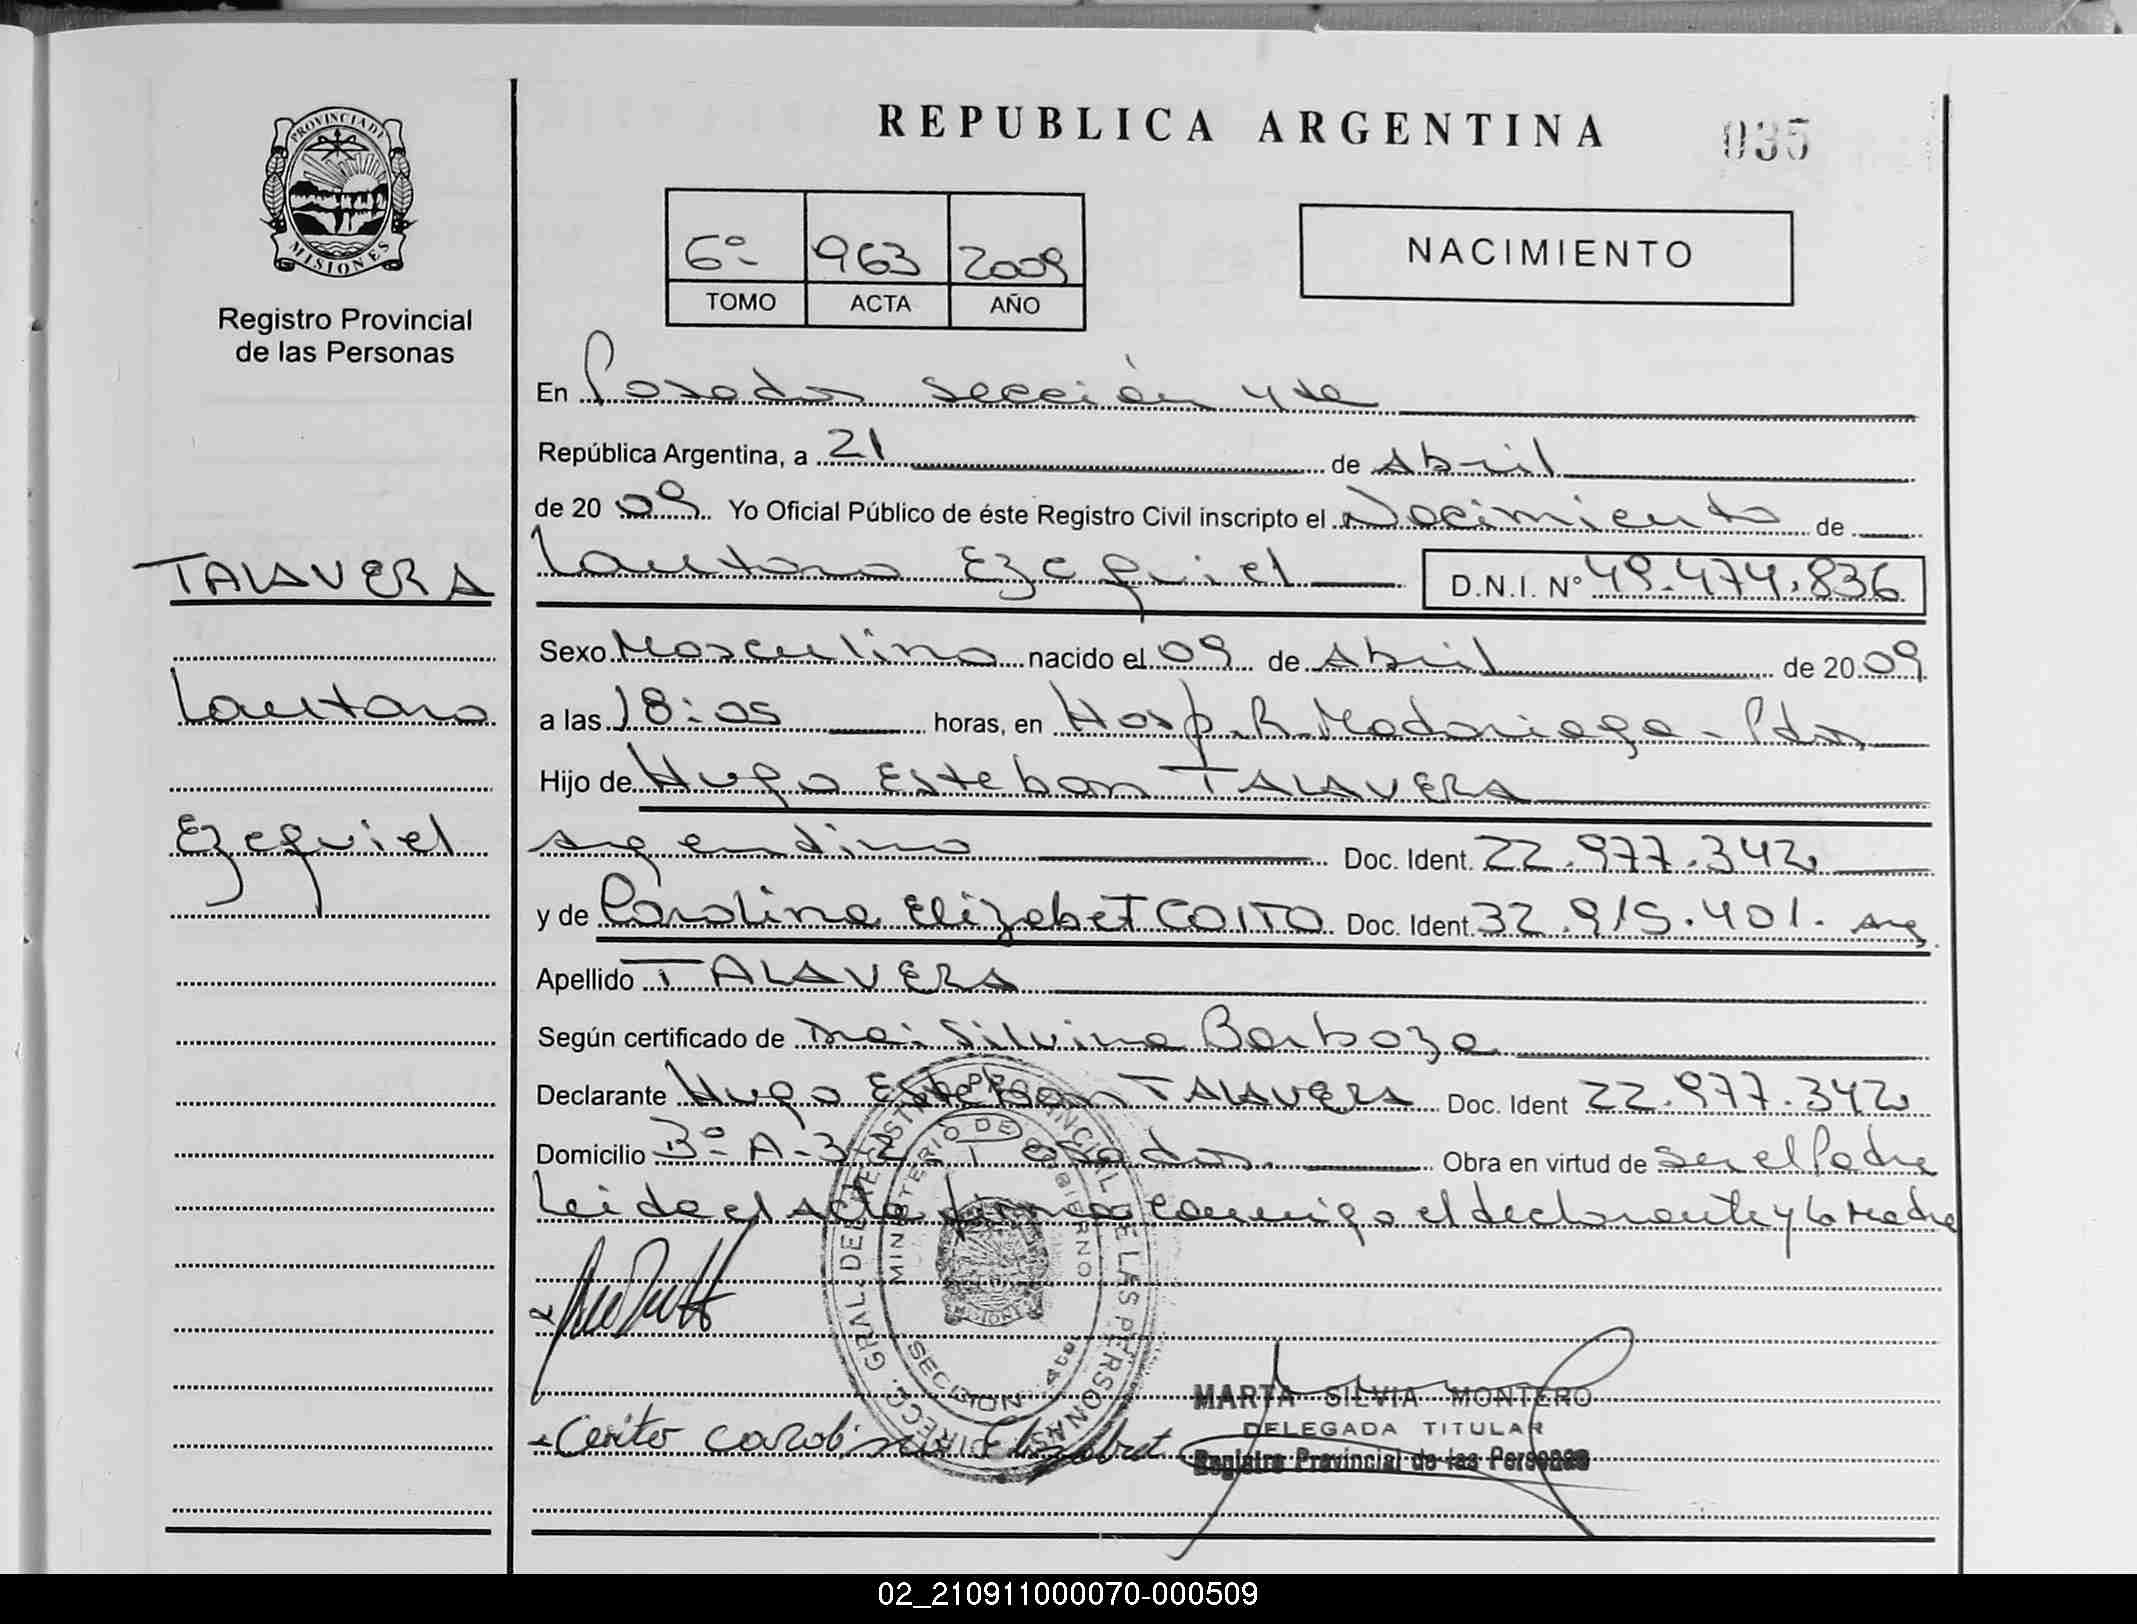 REPUBLICA ARGENTINA
035
PROVINCIA DE
MISIONES
Registro Provincial
de las Personas
6º 963 2009
TOMO ACTA AÑO
NACIMIENTO
En Posadas sección 4ta
República Argentina, a 21 de Abril
de 20 09 Yo Oficial Público de éste Registro Civil inscripto el Nacimiento de
TALAVERA
Lautaro Ezequiel D.N.I. Nº 49.474.836
Sexo Masculino nacido el 09 de Abril de 20 09
Lautaro
a las 18:05 horas, en Hosp. R. Madariaga - Pdas
Hijo de Hugo Esteban TALAVERA
Ezequiel
argentino Doc. Ident. 22.977.342
y de Carolina Elizabet COITO Doc. Ident. 32.915.401. arg
Apellido TALAVERA
Según certificado de Dra: Silvina Barboza
Declarante Hugo Esteban TALAVERA Doc. Ident 22.977.342
Domicilio 3º A-32 - Posadas. Obra en virtud de ser el Padre
Leida el acta firma conmigo el declarante y la Madre
DIRECC. GRAL. DEL REGISTRO PROVINCIAL DE LAS PERSONAS
MINISTERIO DE GOBIERNO
SECCION 4ta
MARTA SILVIA MONTERO
DELEGADA TITULAR
Registro Provincial de las Personas
Coito Carolina Elizabet
02_210911000070-000509